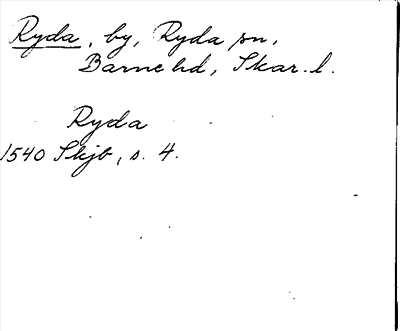 Ryda, by, Ryda sn,
Barne hd, Skar. l.
Ryda
1540 Skjb, s. 4.